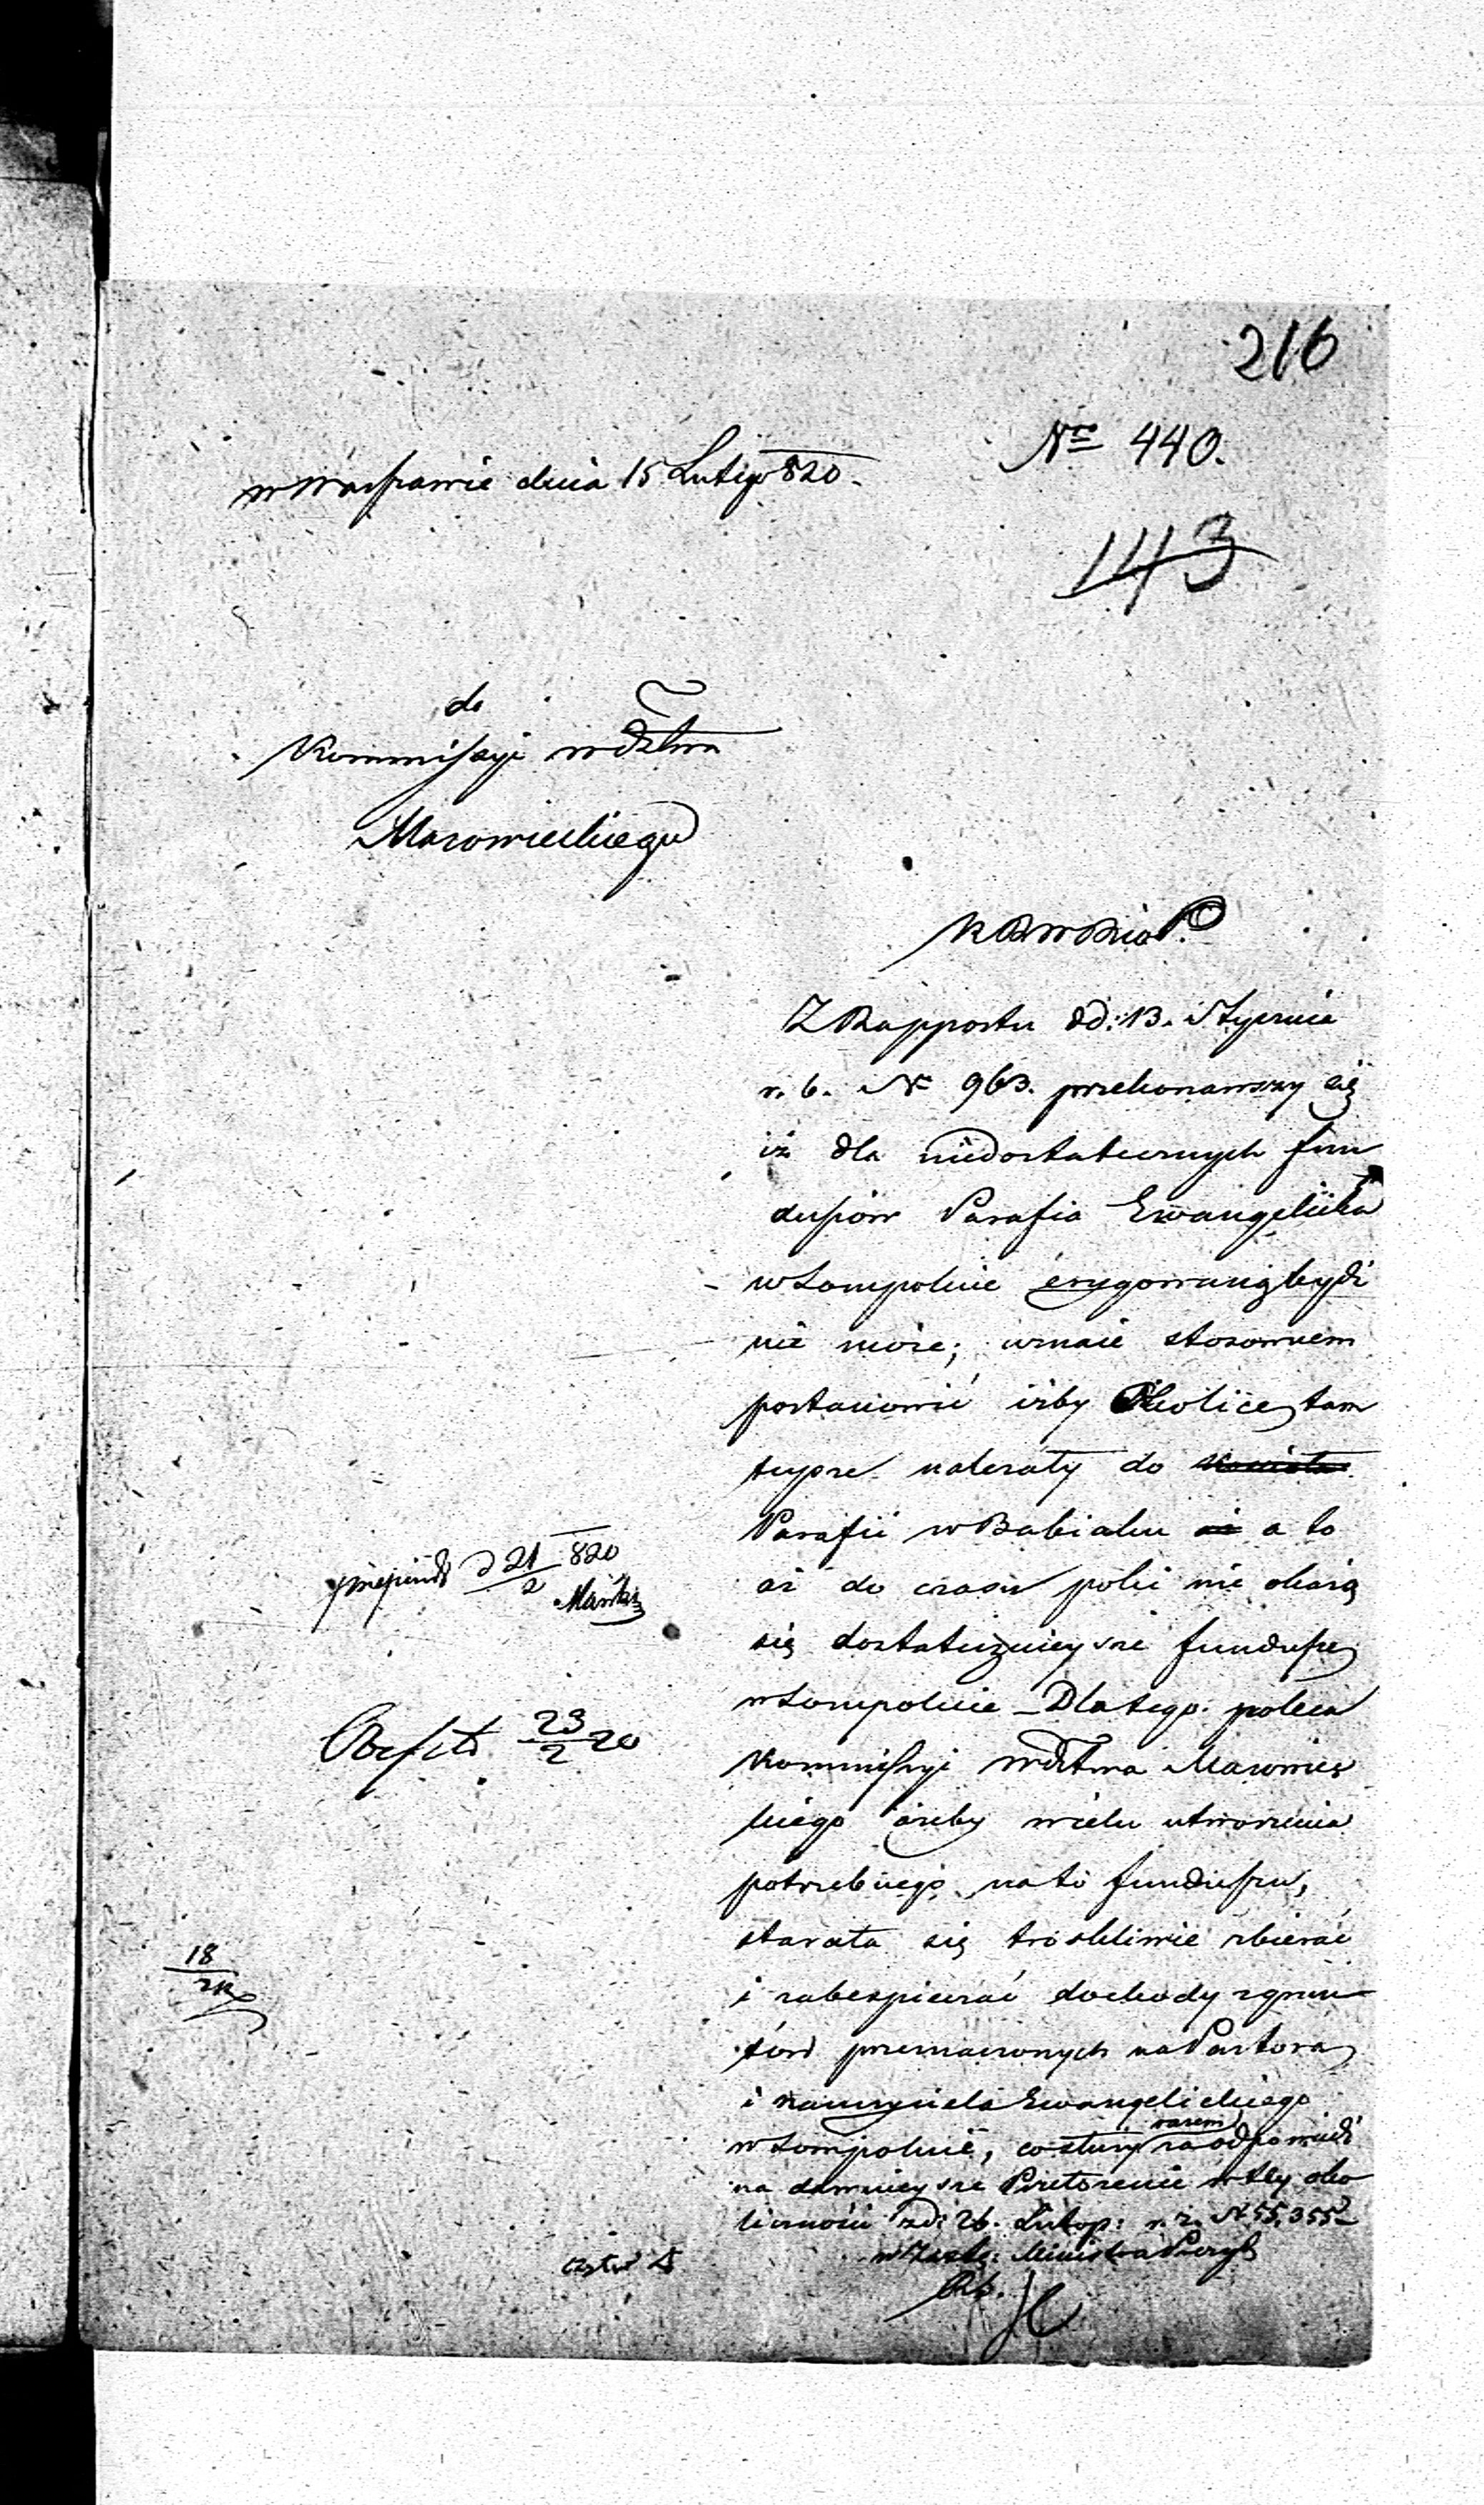 216
Nro 440.
w Warszawie dnia 15 Lutego 820.
143
do
Kommissyi Wdztwa
Mazowieckiego
K R W R i O P.
Z Rapportu dd: 13. Stycznia
r. b. Nr 963. przekonawszy się
iż dla niedostatecznych fun
duszów Parafia Ewangelicka
w Sompolnie erygowaną bydź
nie może; uznaie stosownem
postanowić iżby Okolice tam
teysze należały do
Parafii w Babiaku a to
aż do czasu póki nie okażą
się dostatecznieysze fundusze
w Sompolnie – Dla tego poleca
Kommissyi Wdztwa Mazowiec
kiego ażeby w celu utworzenia
potrzebnego na to funduszu,
starała się troskliwie zbierać
i zabespieczać dochody z grun
tów przeznaczonych na Pastora
i nauczyciela Ewangelickiego
w Sompolnie, co służy razem za odpowiedź
na dawnieysze Przełożenie w tey oko
liczności z d: 26. Listop: r. z. N 55,355
w Zastę: Ministra Prezyd
przepisał d 21/2 820
23/2 20
18/2